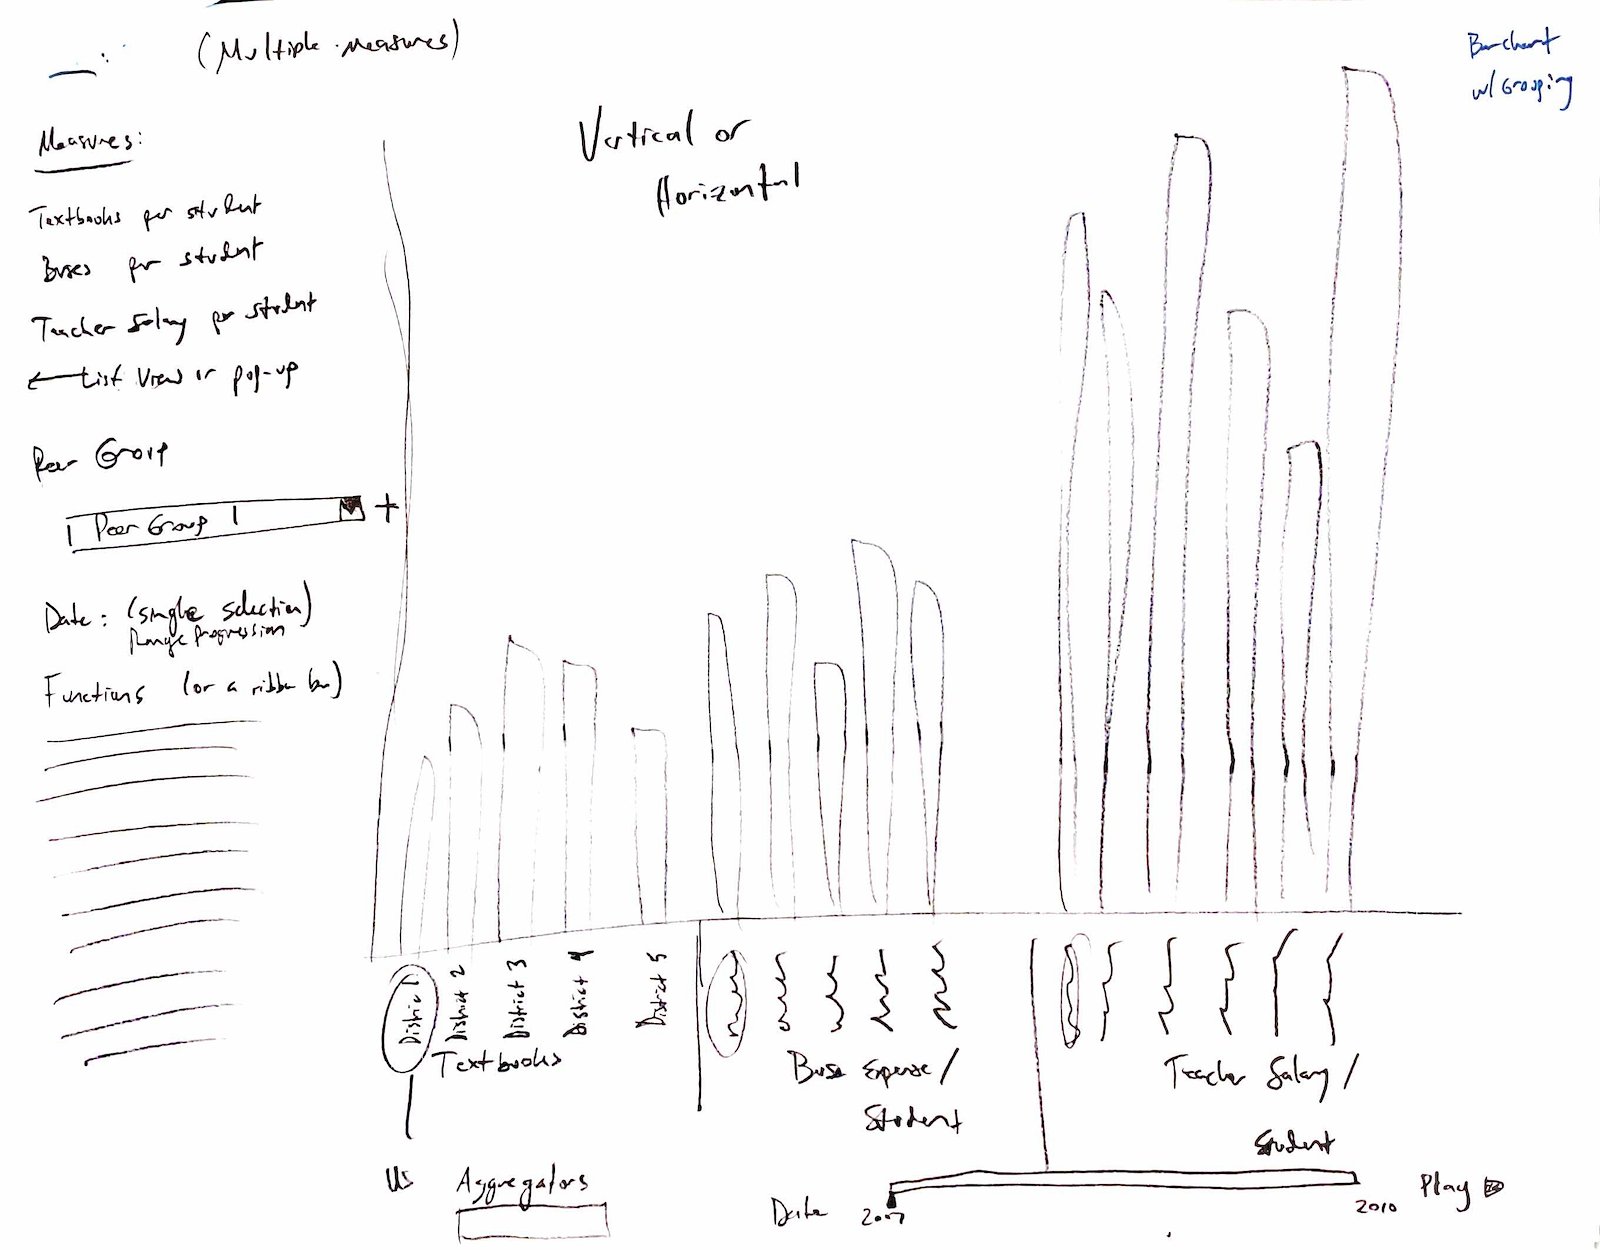 (Multiple measures)
Barchart
w/ Grouping
Vertical or
Horizontal
Measures:
Textbooks per student
Buses per student
Teacher Salary per student
List View or pop-up
Peer Group
Peer Group 1
+
Date: (single selection)
Range Progression
Functions (or a ribbon bar)
District 1
District 2
District 3
District 4
District 5
Textbooks
Bus Expense /
Student
Teacher Salary /
Student
Us
Aggregators
Date
2007
2010
Play